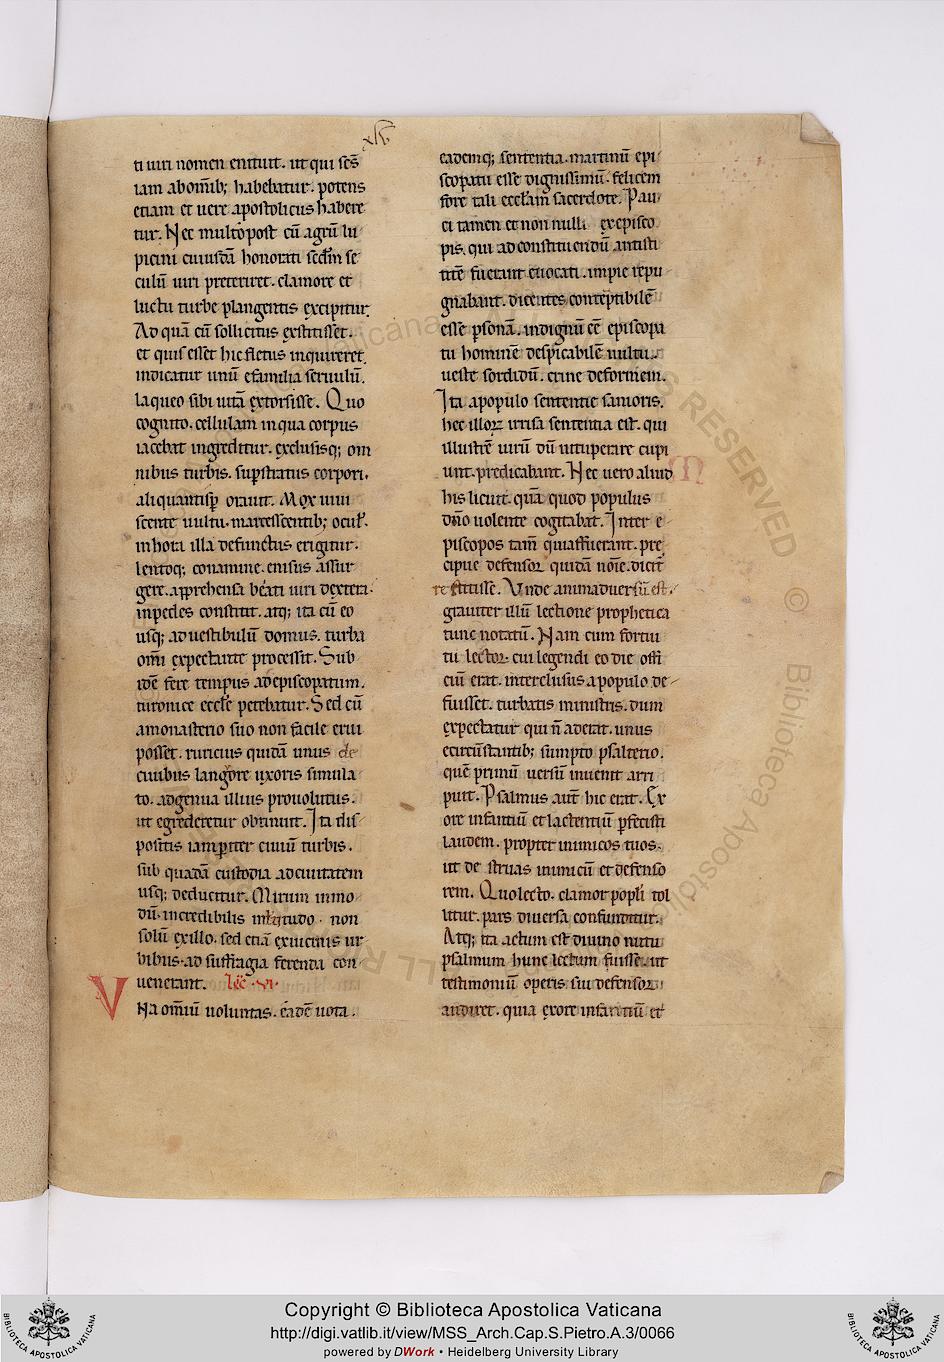 xlv.
ti uiri nomen enituit. ut qui scs̄
iam abom̄ib; habebatur. potens
etiam et uere apostolicus habere
tur. Nec multo post cū agrū lu
picini cuiusdā honorati scdm̄ se
culū uiri preteriret. clamore et
luctu turbe plangentis excipitur.
Ad quā cū sollicitus exstitisset.
et quis esset hic fletus inquireret.
indicatur unū efamilia seruulū.
laqueo sibi uitā extorsisse. Quo
cognito. cellulam inqua corpus
iacebat ingreditur. exclusisq; om
nibus turbis. supstratus corpori.
aliquantisp orauit. Mox uiui
scente uultu. marcescentib; ocul̄.
inhora illa defunctus erigitur.
lentoq; conamine. enisus assur
gere. apprehensa bēati uiri dextera.
inpedes constitit. atq; ita cū eo
usq; ad uestibulū domus. turba
om̄i expectante processit. Sub
idē fere tempus ad episcopatum.
turonice eccl̄e petebatur. Sed cū
amonasterio suo non facile erui
posset. ruricius quidā unus de
ciuibus langore uxoris simula
to. adgenua illius prouolutus.
ut egrederetur obtinuit. Ita dis
positis iampriter ciuiū turbis.
sub quadā custodia adciuitatem
usq; deducitur. Mirum inmo
dū. incredibilis multitudo. non
solū exillo. sed etiā exuicinis ur
bibus. ad suffragia ferenda con
uenerant. Lēc. vi.
VNa om̄iū uoluntas. eadē uota.
eademq; sententia. martinū epi
scopatu esse dignissimū. felicem
fore tali eccl̄am sacerdote. Pau
ci tamen et non nulli exepisco
pis. qui ad constituendū antisti
titē fuerant euocati. impie repu
gnabant. dicentes conteptibilē
esse psonā. indignū eē episcopa
tu hominē despicabilē uultu.
ueste sordidū. crine deformem.
Ita apopulo sententie sanioris.
hec illorꝝ irrisa sententia est. qui
illustrē uirū dū uituperare cupi
unt. predicabant. Nec uero aliud
his licuit. quā quod populus
dn̄o uolente cogitabat. Inter e
piscopos tam̄ quiaffuerant. pre
cipue defensor quidā nōie. dicit̄
restitisse. Unde animaduersū est.
grauiter illū lectione prophetica
tunc notatū. Nam cum fortui
tu lector. cui legendi eo die offi
ciū erat. interclusus apopulo de
fuisset. turbatis ministris. dum
expectatur qui n̄ aderat. unus
ecircūstantib; sumpto psalterio.
quē primū uersū inuenit arri
puit. Psalmus aut̄ hic erat. Ex
ore infantiū et lactentiū pfecisti
laudem. propter inimicos tuos.
ut de struas inimicū et defenso
rem. Quolecto. clamor popl̄i tol
litur. pars diuersa confunditur.
Atq; ita actum est diuino nutu
psalmum hunc lectum fuisse. ut
testimoniū operis sui defensor
audiret. quia exore infantiū et
M
Copyright © Biblioteca Apostolica Vaticana
http://digi.vatlib.it/view/MSS_Arch.Cap.S.Pietro.A.3/0066
powered by DWork • Heidelberg University Library
BIBLIOTECA APOSTOLICA VATICANA
BIBLIOTECA APOSTOLICA VATICANA